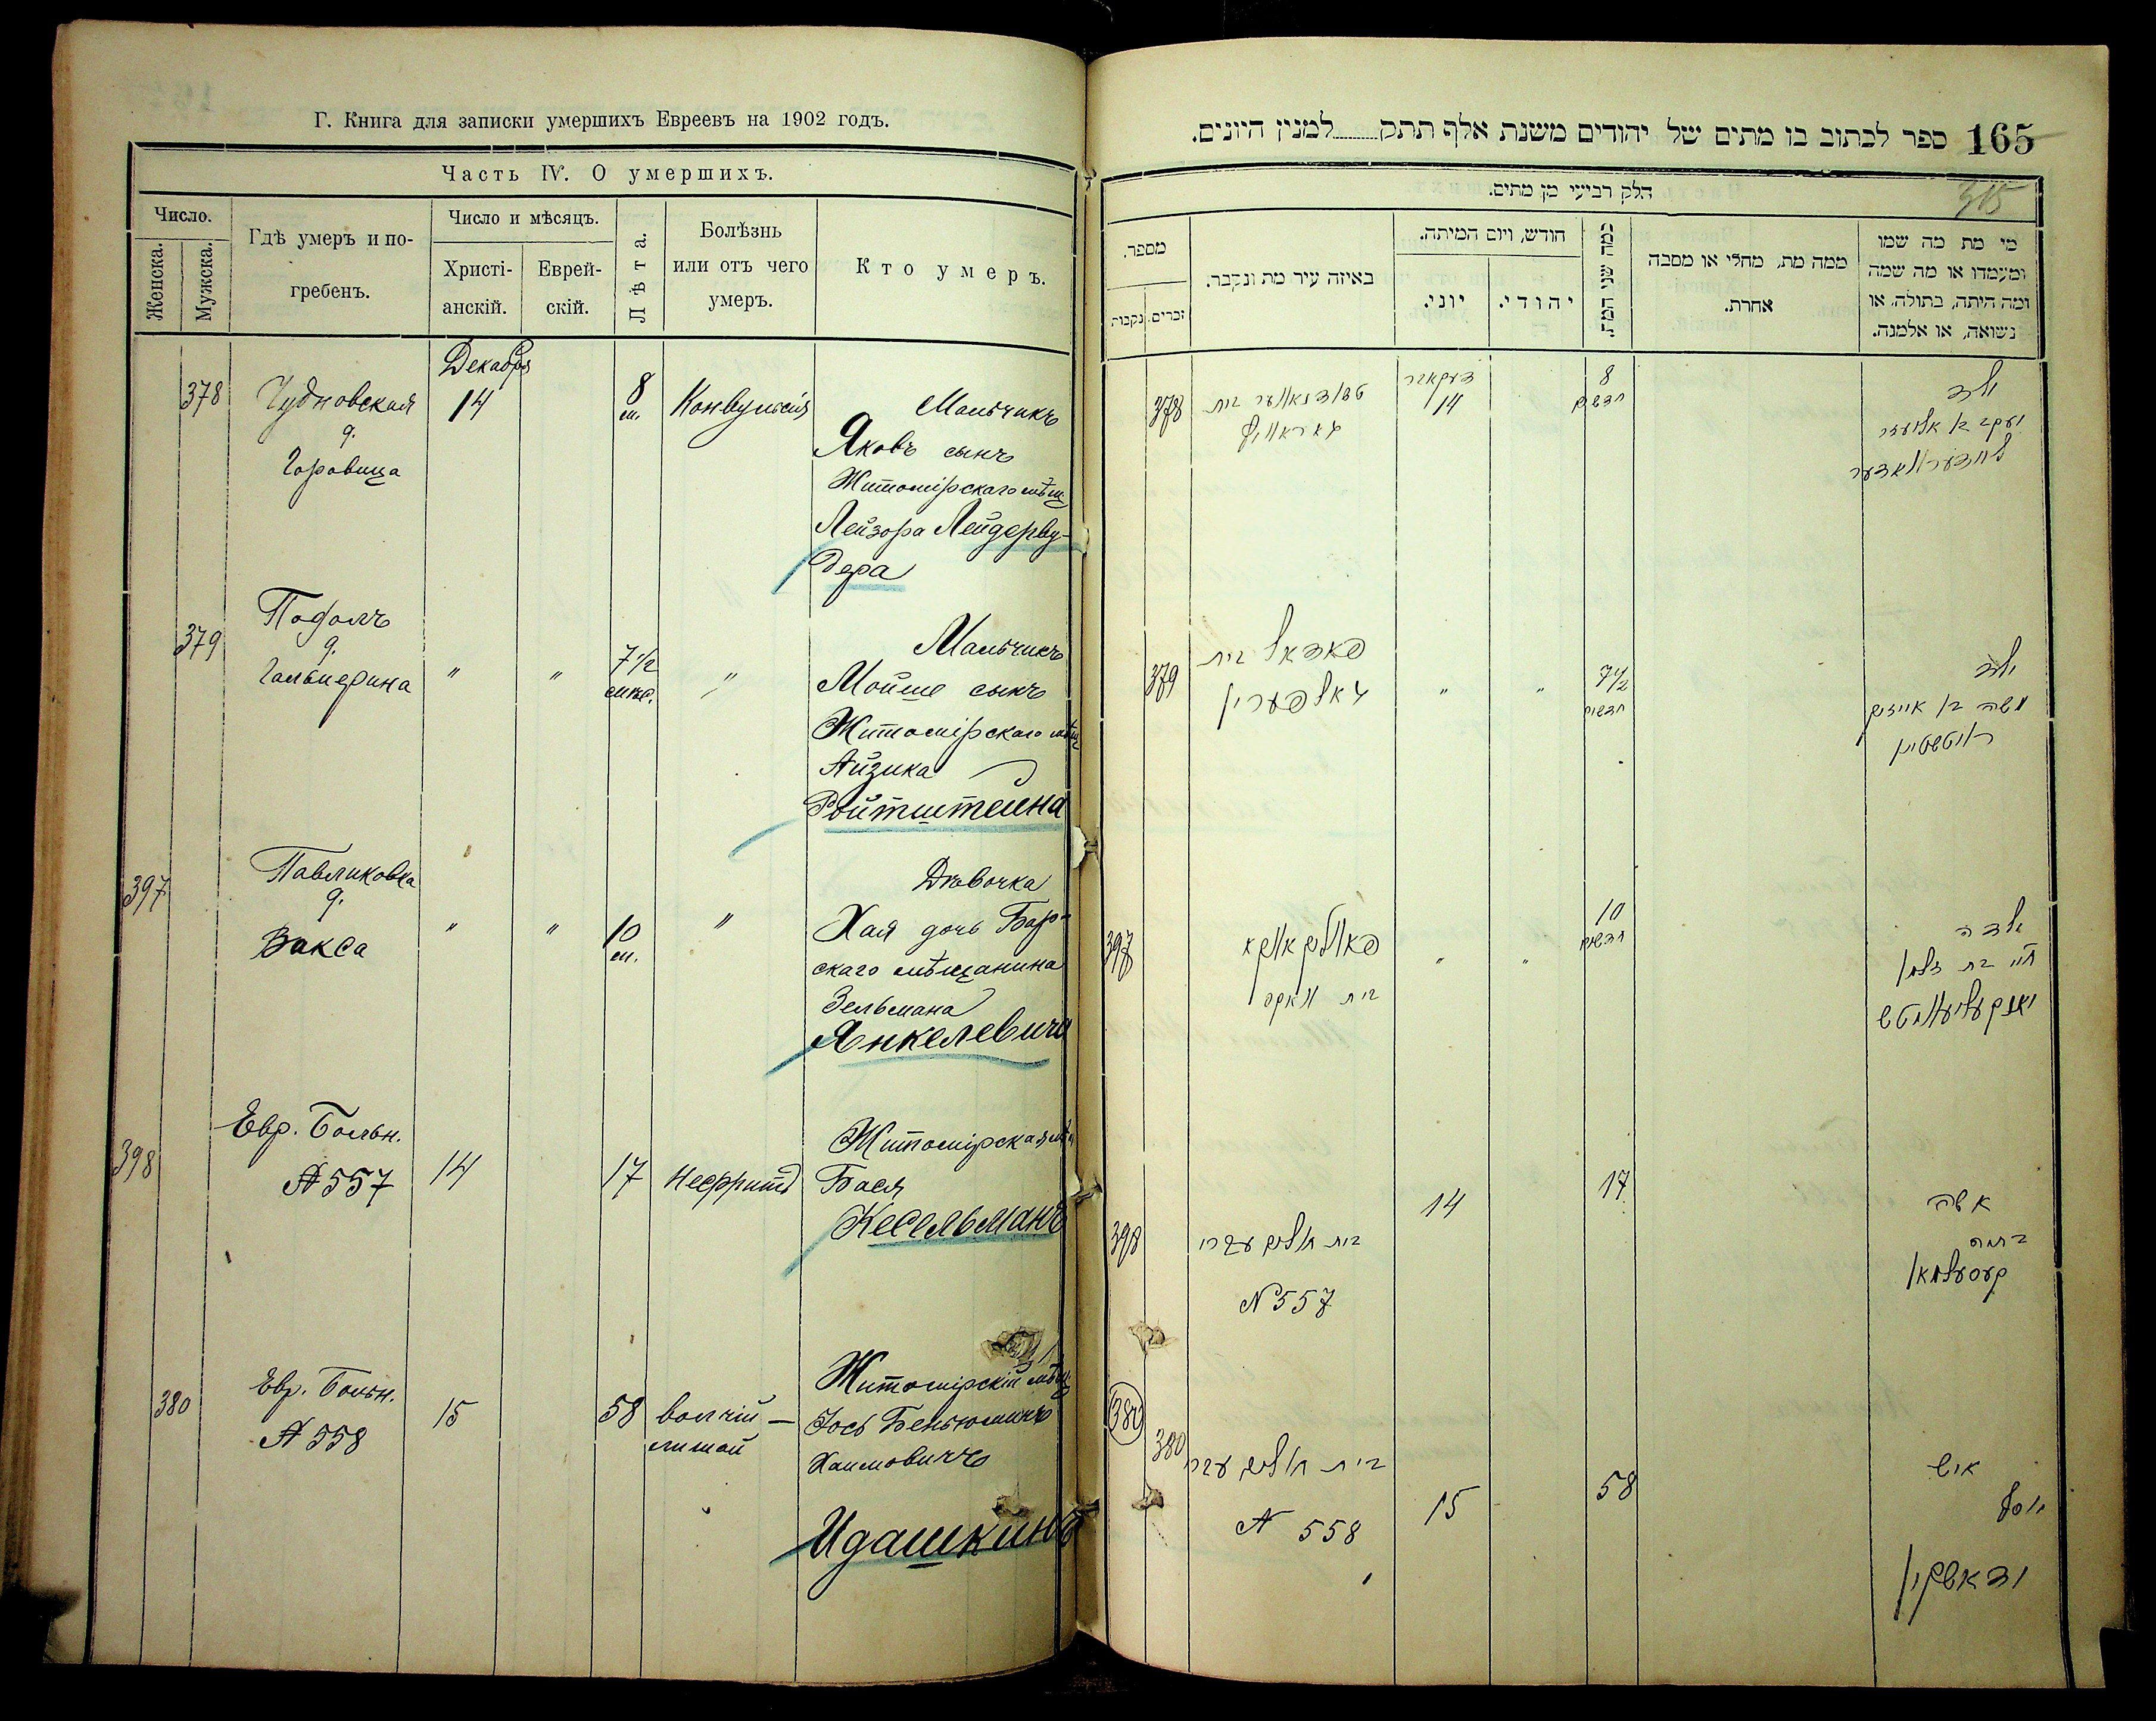 Г. Книга для записки умершихъ Евреевъ на 1902 годъ.
Часть IV. О умершихъ.
Число.
Женска.
Мужска.
Гдѣ умеръ и по-
гребенъ.
Число и мѣсяцъ.
Христі-
анскій.
Еврей-
скій.
Лѣта.
Болѣзнь
или отъ чего
умеръ.
Кто умеръ.
Декабря
378
Чудновская
д.
Горовица
14
8
м.
Конвульсія
Мальчикъ
Яковъ сынъ
Житомірскаго мѣщ
Лейзора Лейдерву-
дера
Подолъ
379
д.
Гальперина
"
"
7 1/2
мѣс.
"
Мальчикъ
Мойше сынъ
Житомірскаго мѣщ
Айзика
Ройтштейна
397
Павликовка
д.
Вакса
"
"
10
м.
"
Дѣвочка
Хая дочь Бар-
скаго мѣщанина
Зельмана
Янкелевича
398
Евр. Больн.
№ 557
14
17
Нефритъ
Житомірская мѣщ
Бася
Кесельманъ
380
Евр. Больн.
№ 558
15
58
волчій —
лишай
Житомірскій мѣщ
Іось Беньюминъ
Хаимовичъ
Идашкинъ
165 ספר לכתוב בו מתים של יהודים משנת אלף תתק........למנין היונים.
חלק רביעי מן מתים.
315
מספר.
זכרים.
נקבות
באיזה עיר מת ונקבר.
חודש, ויום המיתה.
יוני.
יהודי.
כמה שני המת.
ממה מת, מחלי או מסבה
אחרת.
מי מת מה שמו
ומעמדו או מה שמה
ומה היתה, בתולה, או
נשואה, או אלמנה.
378
דעקאבר
14
8
חדשים
ילד
יעקב בן אליעזר
379
פאדאל בית
גאלפערין
"
"
7 1/2
חדשים
ילד
משה בן אייזיק
רויטשטיין
397
פאוליקאווקא
בית וואקס
"
"
10
חדשים
ילדה
חי' בת זלמן
יאנקעלעוויטש
398
בית חולים עברי
N 557
14
17
אשה
בתיה
קעסעלמאן
380
380
בית חולים עברי
№ 558
15
58
איש
יוסף
ידאשקין